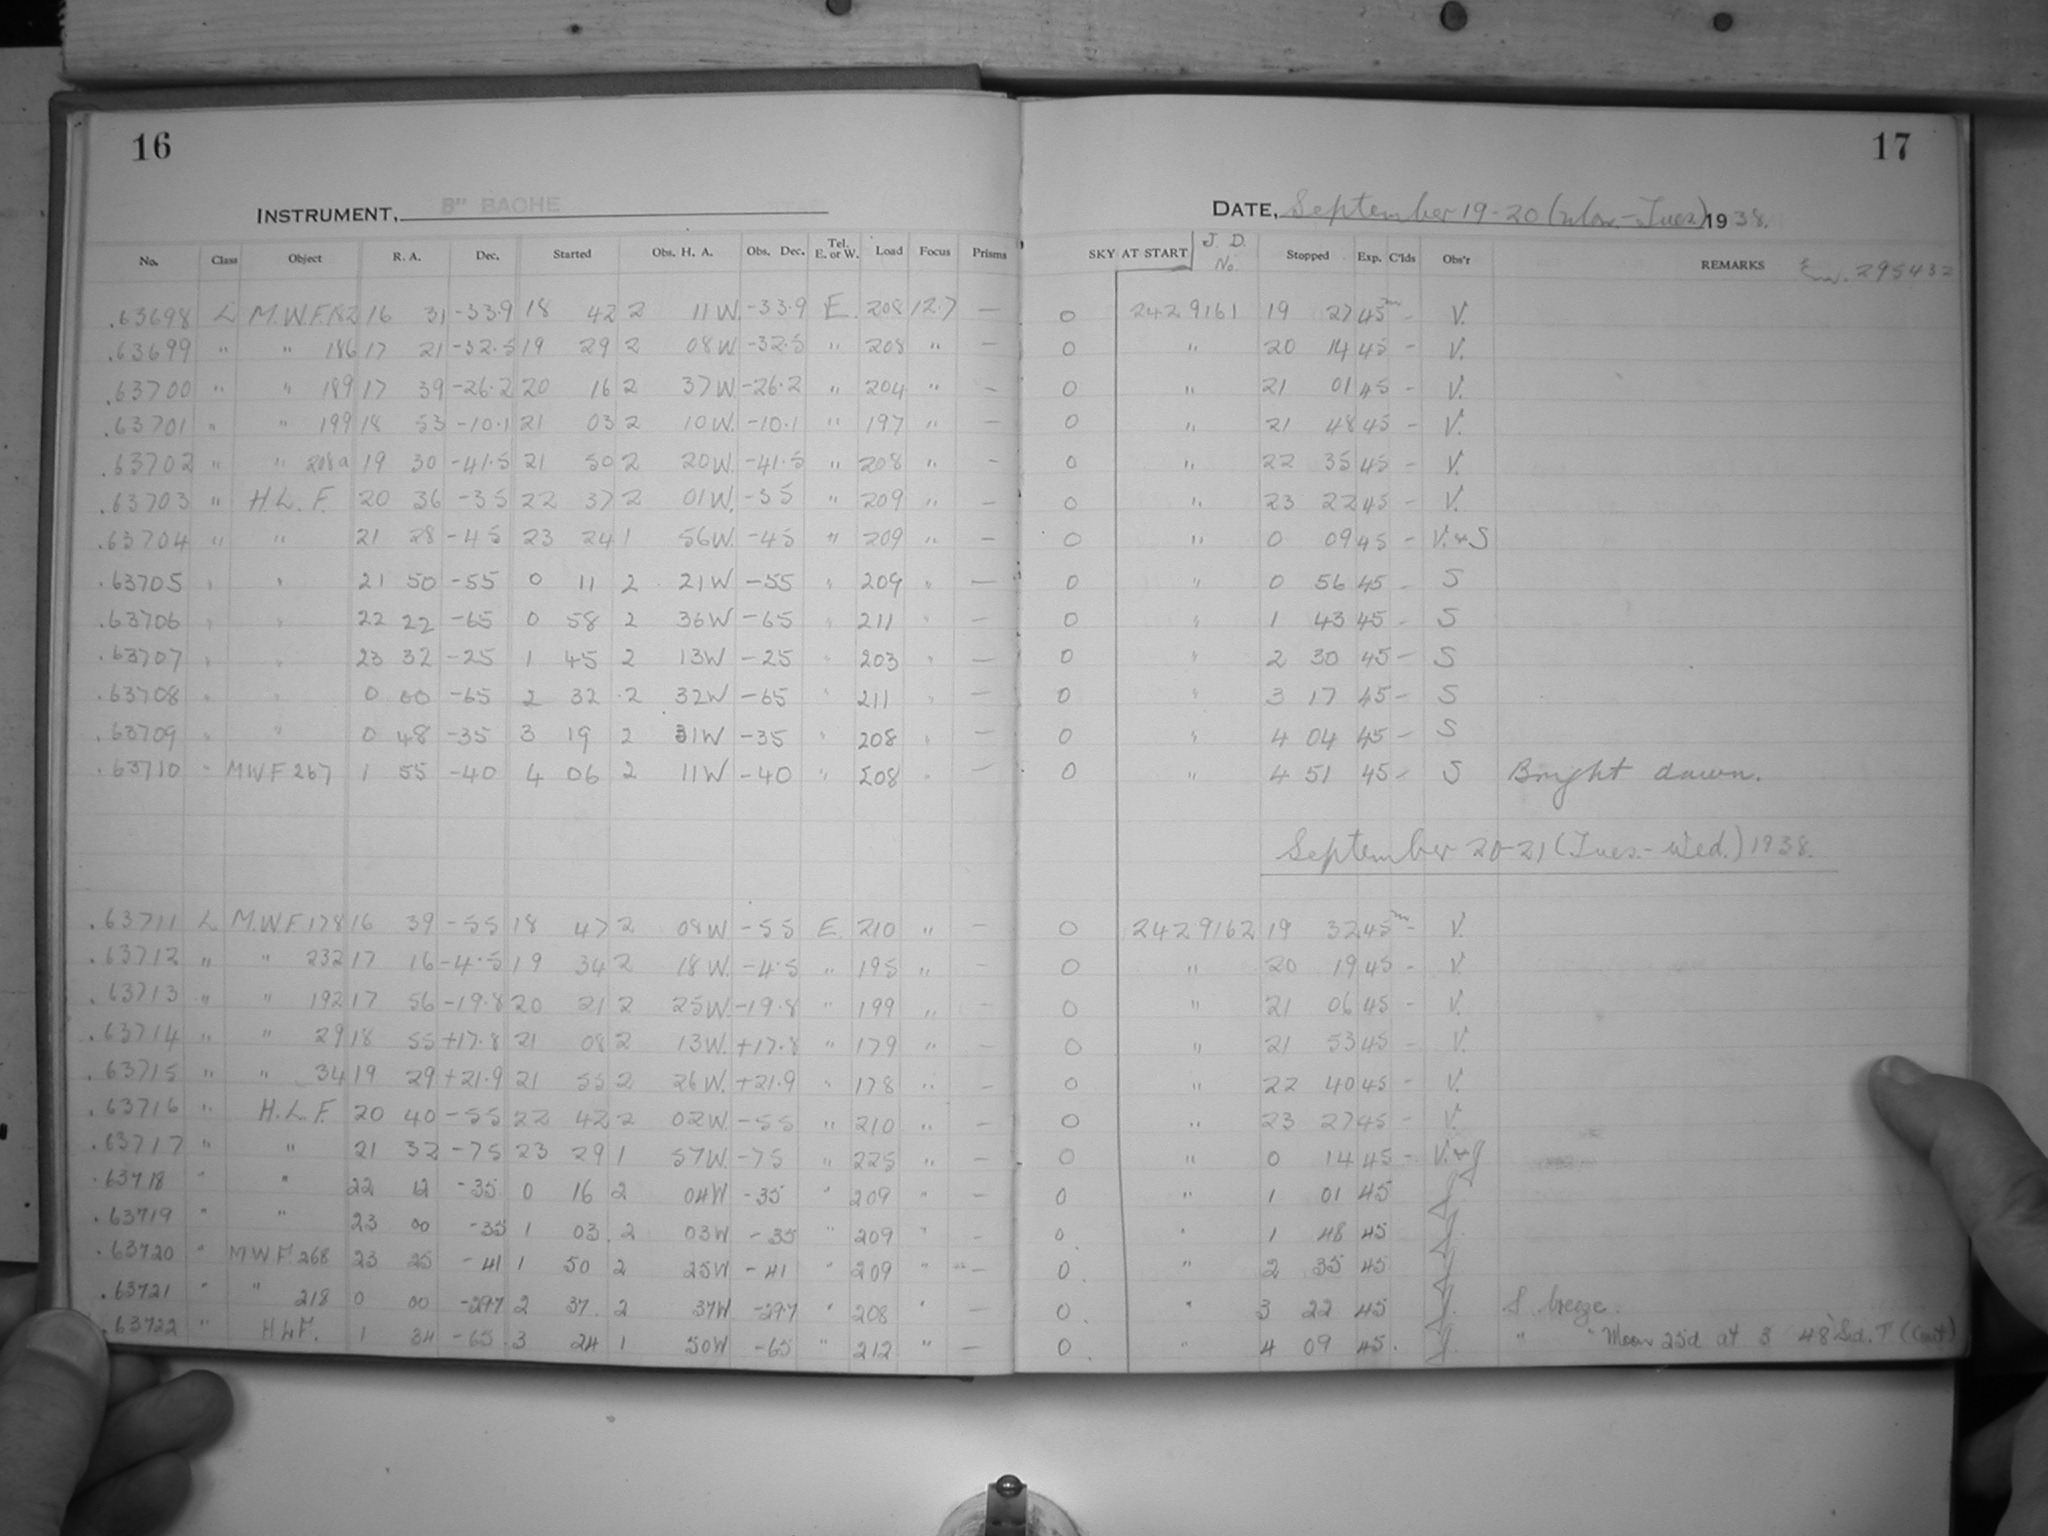 16
17
INSTRUMENT, 8" BACHE
DATE, September 19-20 (Mon.-Tues) 1938.
No. Class Object R. A. Dec. Started Obs. H. A. Obs. Dec. Tel. E. or W. Load Focus Prisms SKY AT START J. D. No. Stopped Exp. C'lds Obs'r REMARKS 295432
.63698 L M.W.F.182 16 31 -33.9 18 42 2 11W. -33.9 E. 208 12.7 — 0 2429161 19 27 45m - V.
.63699 " " 186 17 21 -32.5 19 29 2 08W -32.5 " 208 " — 0 " 20 14 45 - V.
.63700 " " 189 17 39 -26.2 20 16 2 37W -26.2 " 204 " — 0 " 21 01 45 - V.
.63701 " " 199 18 53 -10.1 21 03 2 10W. -10.1 " 197 " — 0 " 21 48 45 - V.
.63702 " " 208a 19 30 -41.5 21 50 2 20W. -41.5 " 208 " — 0 " 22 35 45 - V.
.63703 " H.L.F. 20 36 -35 22 37 2 01W. -35 " 209 " — 0 " 23 22 45 - V.
.63704 " " 21 28 -45 23 24 1 56W. -45 " 209 " — 0 " 0 09 45 - V. & S
.63705 " " 21 50 -55 0 11 2 21W -55 " 209 " — 0 " 0 56 45 - S
.63706 " " 22 22 -65 0 58 2 36W -65 " 211 " — 0 " 1 43 45 - S
.63707 " " 23 32 -25 1 45 2 13W -25 " 203 " — 0 " 2 30 45 - S
.63708 " " 0 00 -65 2 32 2 32W -65 " 211 " — 0 " 3 17 45 - S
.63709 " " 0 48 -35 3 19 2 31W -35 " 208 " — 0 " 4 04 45 - S
.63710 " MWF 267 1 55 -40 4 06 2 11W -40 " 208 " — 0 " 4 51 45 - S Bright dawn.
September 20-21 (Tues.-Wed.) 1938.
.63711 L M.W.F.178 16 39 -55 18 47 2 08W -55 E. 210 " — 0 2429162 19 32 45m - V.
.63712 " " 232 17 16 -4.5 19 34 2 18W. -4.5 " 195 " — 0 " 20 19 45 - V.
.63713 " " 192 17 56 -19.8 20 21 2 25W. -19.8 " 199 " — 0 " 21 06 45 - V.
.63714 " " 29 18 55 +17.8 21 08 2 13W. +17.8 " 179 " — 0 " 21 53 45 - V.
.63715 " " 34 19 29 +21.9 21 55 2 26W. +21.9 " 178 " — 0 " 22 40 45 - V.
.63716 " H.L.F. 20 40 -55 22 42 2 02W. -55 " 210 " — 0 " 23 27 45 - V.
.63717 " " 21 32 -75 23 29 1 57W. -75 " 225 " — 0 " 0 14 45 - V. & J
.63718 " " 22 12 -35 0 16 2 04W -35 " 209 " — 0 " 1 01 45
.63719 " " 23 00 -35 1 03 2 03W -35 " 209 " — 0 " 1 48 45
.63720 " MWF 268 23 25 -41 1 50 2 25W -41 " 209 " — 0 " 2 35 45
.63721 " " 218 0 00 -29.7 2 37 2 37W -29.7 " 208 " — 0 " 3 22 45 S. breeze.
.63722 " HLF. 1 34 -65 3 24 1 50W -65 " 212 " — 0 " 4 09 45 " " Moon 25d at 3 48 Sid. T (Cont)